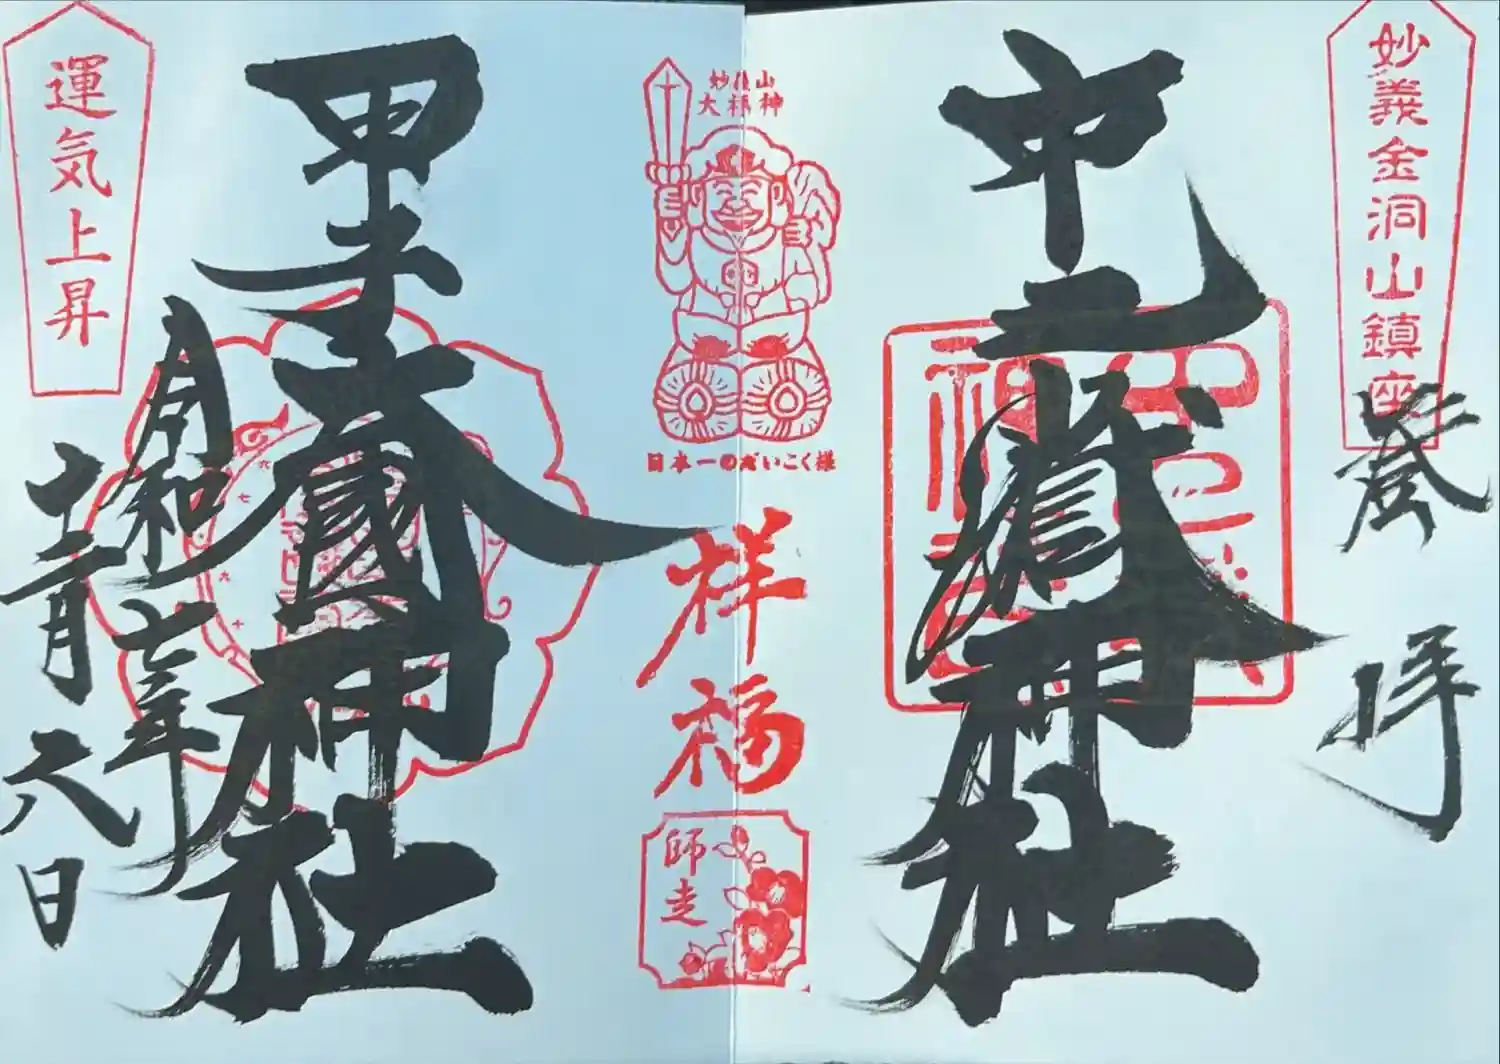 妙義金洞山鎮座
登拝
中之嶽神社
妙義山
大福神
日本一のだいこく様
祥福
師走
甲子大國神社
令和七年
十二月六日
運気上昇